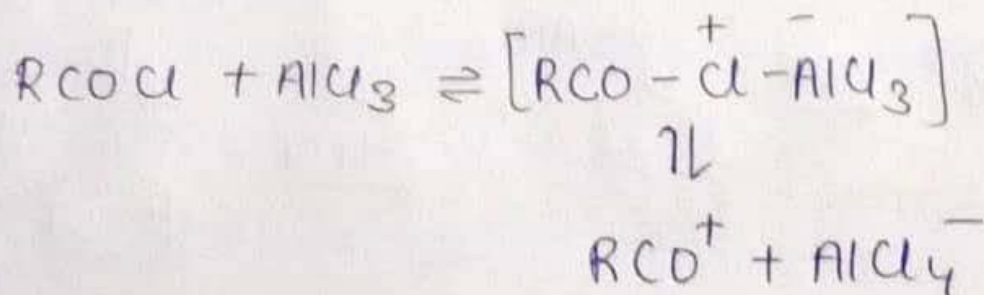 RCOCl + AlCl₃ ⇌ [RCO-Cl⁺-AlCl₃⁻]
⇌
RCO⁺ + AlCl₄⁻